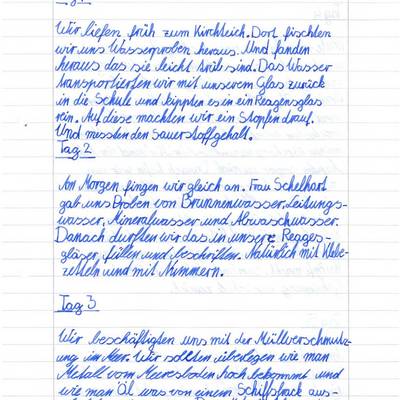 Wir liefen früh zum Kirchteich. Dort fischten
wir uns Wasserproben heraus. Und fanden
heraus das sie leicht trüb sind. Das Wasser
transportierten wir mit unserem Glas zurück
in die Schule und kippten es in ein Reagensglas
rein. Auf diese machten wir ein Stopfen drauf.
Und messten den Sauerstoffgehalt.
Tag 2
Am Morgen fingen wir gleich an. Frau Schelhart
gab uns Proben von Brunnenwasser, Leitungs-
wasser, Mineralwasser und Abwaschwasser.
Danach durften wir das in unsere Reages-
gläser, füllen und beschriften. Natürlich mit Klebe-
zetteln und mit Nummern.
Tag 3
Wir beschäftigten uns mit der Müllverschmutz-
ung im Meer. Wir sollten überlegen wie man
Metall vom Meeresboden hoch bekommt und
wie man Öl was von einem Schiffsfrack aus-